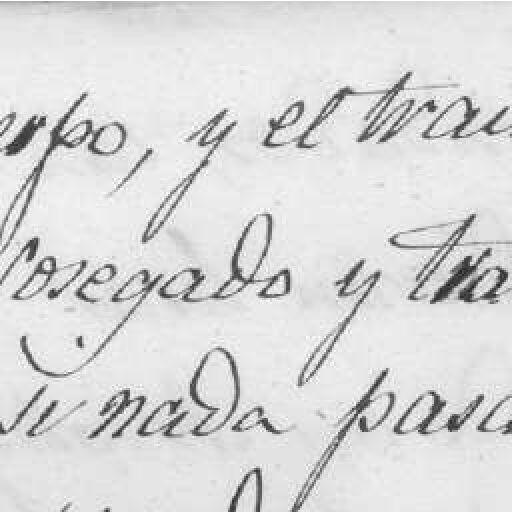 erpo, y el trau
sosegado y tra
si nada pasa